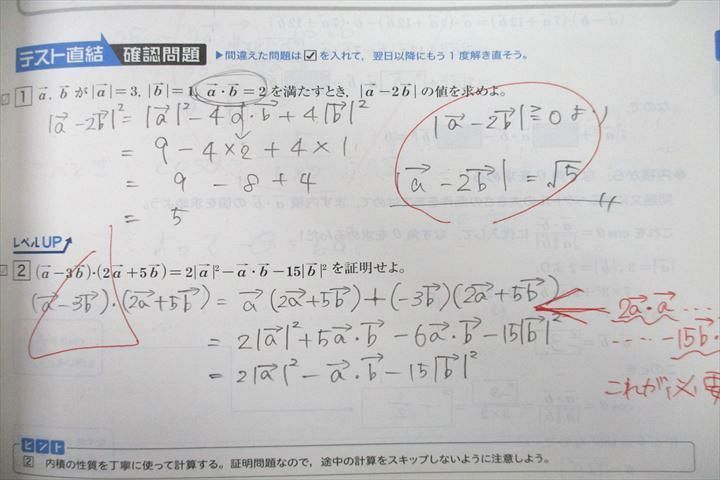 テスト直結 確認問題 ▶間違えた問題は☑を入れて、翌日以降にもう1度解き直そう。
1 a⃗, b⃗ が |a⃗|=3, |b⃗|=1, a⃗・b⃗=2 を満たすとき, |a⃗−2b⃗| の値を求めよ。
|a⃗−2b⃗|²=|a⃗|²−4a⃗・b⃗+4|b⃗|²
= 9 − 4×2 + 4×1
= 9 − 8 + 4
= 5
|a⃗−2b⃗|≧0 より
|a⃗−2b⃗| = √5
レベルUP
2 (a⃗−3b⃗)・(2a⃗+5b⃗)=2|a⃗|²−a⃗・b⃗−15|b⃗|² を証明せよ。
(a⃗−3b⃗)・(2a⃗+5b⃗) = a⃗(2a⃗+5b⃗)+(−3b⃗)(2a⃗+5b⃗)
= 2|a⃗|²+5a⃗・b⃗−6a⃗・b⃗−15|b⃗|²
= 2|a⃗|²−a⃗・b⃗−15|b⃗|²
2a⃗・a⃗ ……
……−15b⃗・
これが必要
ヒント
2 内積の性質を丁寧に使って計算する。証明問題なので, 途中の計算をスキップしないように注意しよう。